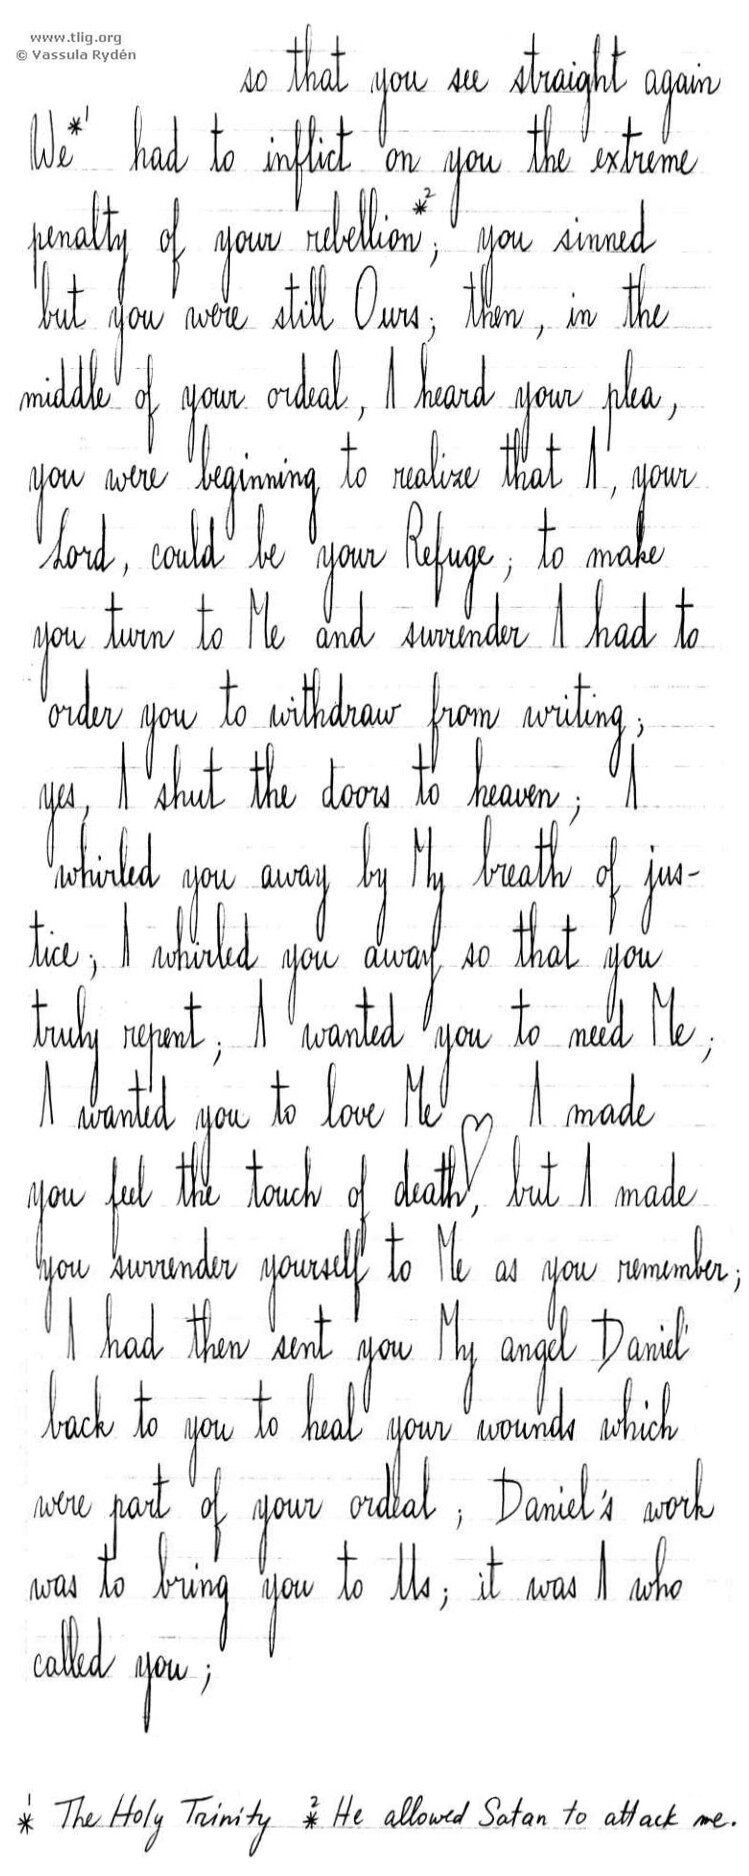 www.tlig.org
© Vassula Rydén
so that you see straight again
We*1 had to inflict on you the extreme
penalty of your rebellion*2; you sinned
but you were still Ours; then, in the
middle of your ordeal, I heard your plea,
you were beginning to realize that I, your
Lord, could be your Refuge; to make
you turn to Me and surrender I had to
order you to withdraw from writing;
yes, I shut the doors to heaven; I
whirled you away by My breath of jus-
tice; I whirled you away so that you
truly repent; I wanted you to need Me;
I wanted you to love Me ♡ I made
you feel the touch of death, but I made
you surrender yourself to Me as you remember;
I had then sent you My angel Daniel
back to you to heal your wounds which
were part of your ordeal; Daniel's work
was to bring you to Us; it was I who
called you;
*1 The Holy Trinity *2 He allowed Satan to attack me.